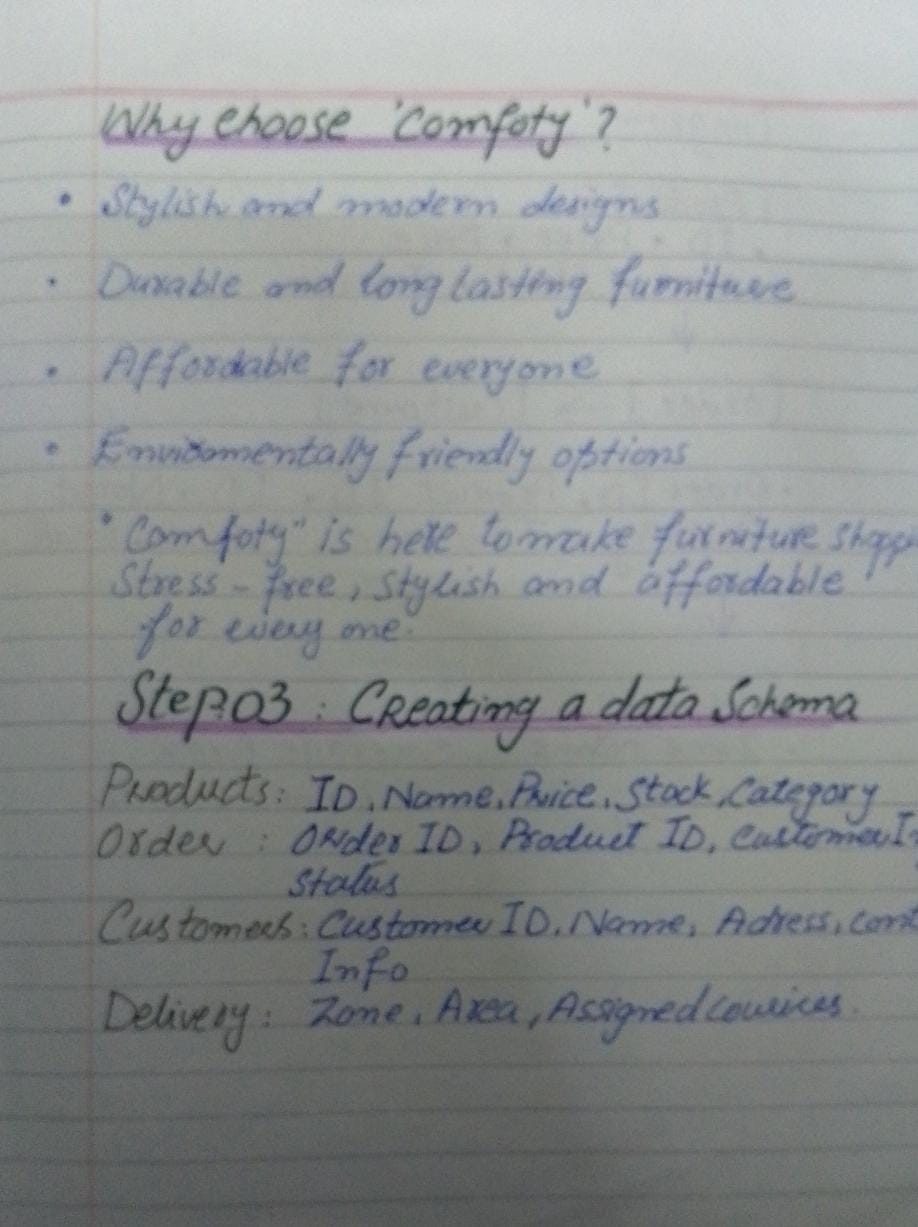 Why choose 'Comfoty'?
• Stylish and modern designs
• Durable and long lasting furniture
• Affordable for everyone
• Enviromentally friendly options
"Comfoty" is here to make furniture
Stress-free, stylish and affordable
for every one.
Step:03 : Creating a data Schema
Products: ID, Name, Price, Stock, Category
Order : Order ID, Product ID, Customer
Status
Customers: Customer ID, Name, Adress,
Info
Delivery: Zone, Area, Assigned